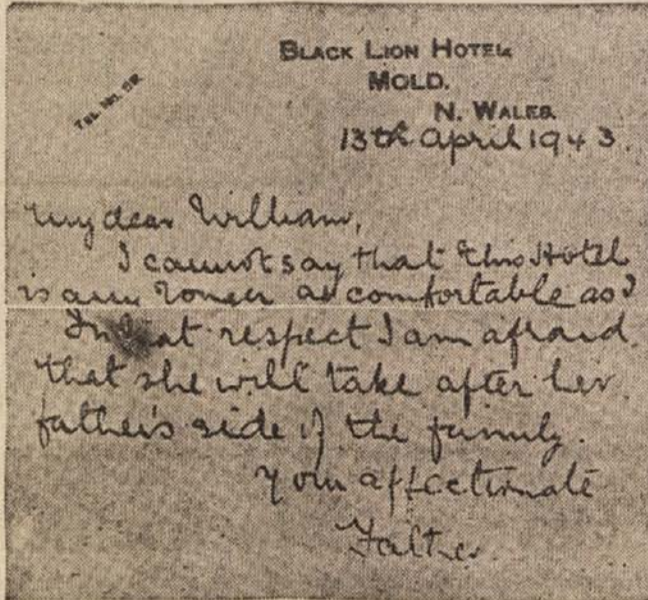 BLACK LION HOTEL
MOLD.
N. WALES.
TEL No. 98
13th April 1943.
My dear William,
I cannot say that this Hotel
is any longer as comfortable as I
In that respect I am afraid
that she will take after her
father's side of the family.
Your affectionate
Father.